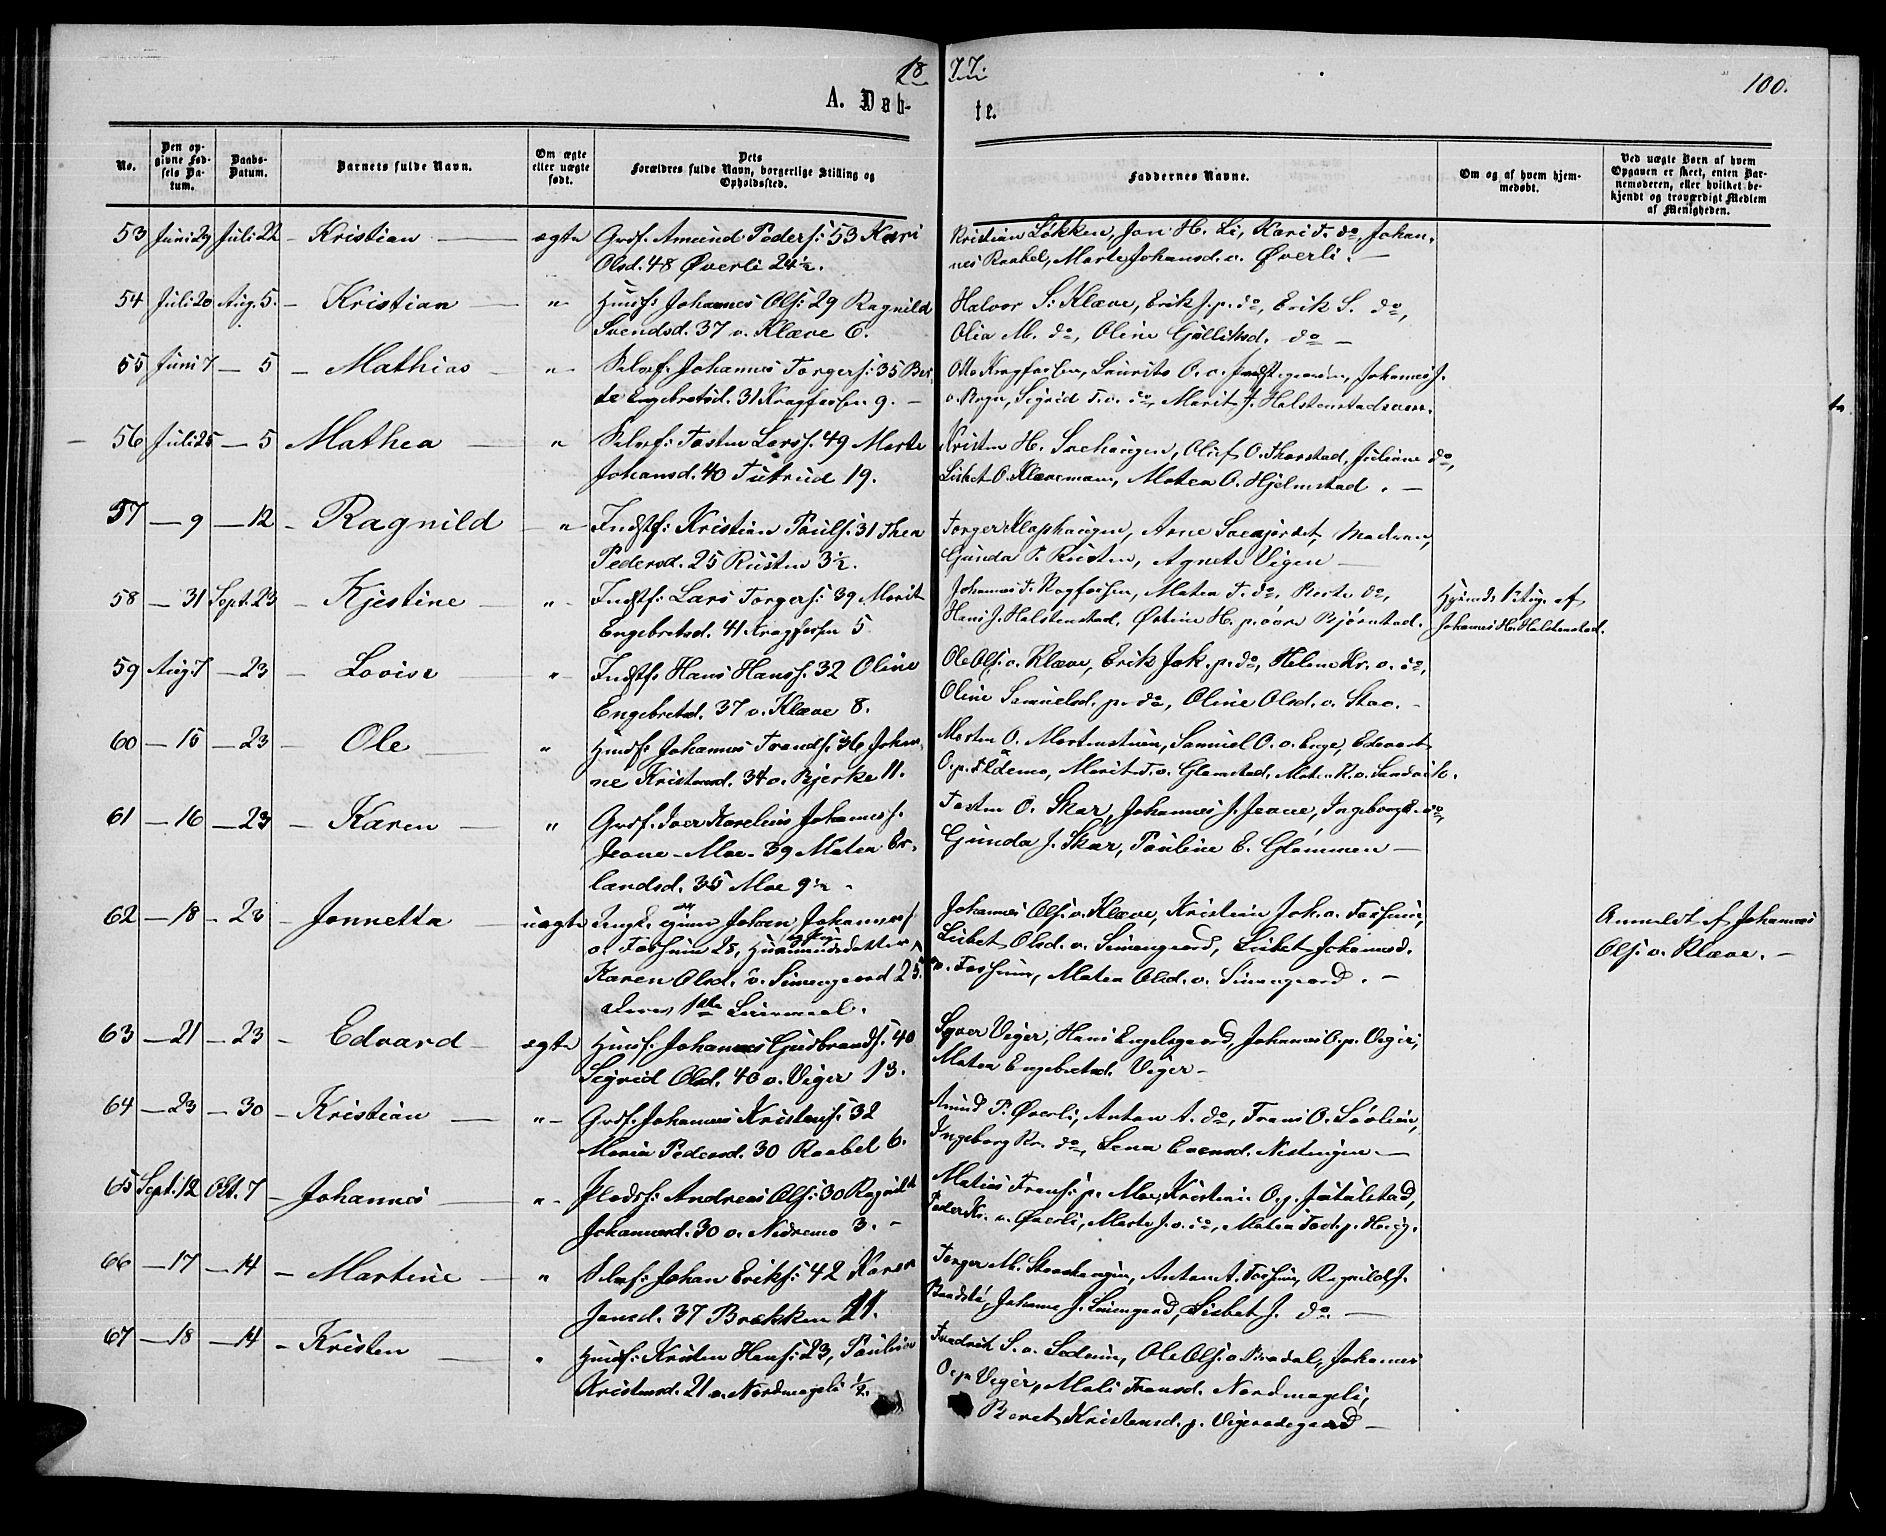 18 77.
100.
A. Døb- te.
No.
Den op-
givne Fød-
sels Da-
tum.
Daabs-
Datum.
Barnets fulde Navn.
Om ægte
eller uægte
født.
Dets
Forældres fulde Navn, borgerlige Stilling og
Opholdssted.
Faddernes Navne.
Om og af hvem hjem-
medøbt.
Ved uægte Børn af hvem
Opgaven er skeet, enten Bar-
nemoderen, eller hvilket be-
kjendt og troværdigt Medlem
af Menigheden.
53 Juni 29 Juli 22 - Kristian ægte Grdf. Amund Peders: 53 Kari
Olsd. 48 Øverli 24½.
Kristian Løkken, Jon H. Li, Kari T. do, Johan-
nes Raabel, Marte Johansd. v. Øverli. -
54 Juli 20 Aug. 5. - Kristian " Husf: Johannes Ols: 29 Ragnild
Svendsd. 37 v. Klæve 6.
Halvor S. Klæve, Erik J. p. do, Erik S. do,
Olia M. do, Oline Gulliksd. do -
55 Juni 7 - 5 - Mathias " Selvf. Johannes Torgers: 35 Ber-
te Engebretsd. 31 Kragfossen 9. -
Otto Kragfossen, Laurits O. v. Johannes J.
Sigrid T. v. do, Marit J. Halstenstadsveen.
56 Juli 25 - 5 Mathea " Selvf: Tosten Larss. 49 Marte
Johansd. 40 Tutrud 19.
Kristen H. Sæhaugen, Oluf O. Thorstad, Juliane do,
Lisbet O. Klævemoen, Matea O. Hjelmstad. -
57 - 9 - 12 - Ragnild " Indstf: Kristian Pauls: 31 Thea
Pedersd. 25 Rusten 3½.
Torger Klophaugen, Arne Sveajordet, Madsen,
Gunda P. Rusten, Agnete Vigen -
58 - 31 Sept. 23 - Kjestine " Indstf: Lars Torgers: 39 Marit
Engebretsd. 41 Kragfossen 5
Johannes T. Kragfossen, Matea T. do, Berte do,
Hans J. Halstenstad, Østine H. p. øvre Bjørnstad.
Hjemd. 1 Aug. af
Johannes H. Halstenstad.
59 Aug. 7 - 23 - Lovise " Indstf: Hans Hanss. 32 Oline
Engebretsd. 37 v. Klæve 8.
Ole Ols. v. Klæve, Erik Joh. p. do, Helene Kr. v. do,
Oline Samuelsd. p. do, Oline Olsd. v. Stav. -
60 - 15 - 23 - Ole " Husf: Johannes Fronds: 36 Johan-
ne Kristensd. 34 v. Bjerke 11.
Morten O. Mortenstuen, Samuel O. v. Enge, Edvart
O. p. Oldemo, Marit T. v. Glomstad, Maten K. v. Sandvik.
61 - 16 - 23 - Karen " Grdf. Iver Karelius Johaness.
Jevne-Moe 39 Matea Er-
landsd. 35 Moe 9½ -
Tosten O. Skar, Johannes J. Jevne, Ingeborg E. do,
Gunda J. Skar, Pauline E. Glømmen -
62 - 18 - 23 - Jonnetta uægte Ungk. Johan Johanness.
v. Fossum 28, Husmandsdatter
Karen Olsd. v. Simengaard 25.
deres 1ste Leiermaal.
Johannes Ols. v. Klæve, Kristian Joh. v. Fossum,
Lisbet Olsd. v. Simengaard, Lisbet Johannesd.
v. Fossum, Matea Olsd. v. Simengaard. -
Anmeldt af Johannes
Ols. v. Klæve. -
63 - 21 - 23 - Edvard ægte Husf: Johannes Gudbrands. 40
Sigrid Olsd. 40 v. Viger 13.
Syver Viger, Hans Engelsgaard, Johannes O. p. Viger,
Matea Engebretsd. Viger -
64 - 23 - 30 - Kristian " Grdf. Johannes Kristens: 32
Maria Pedersd. 30 Raabel 6.
Amund P. Øverli, Anton A. do, Frans O. Løvlien,
Ingeborg Kr. do, Lena Evensd. Nistuen -
65 Sept. 12 Okt. 7 - Johannes " Plads: Andreas Ols: 30 Ragnild
Johannesd. 30 v. Nedremo 3. -
Matias Frans: p. Moe, Kristine O. p. Jutulstad,
Peder Kr. v. Øverli, Marte J. v. do, Matea Tost. p.
66 - 17 - 14 - Martine " Selvf: Johan Eriks: 42 Karen
Jansd. 37 Brækken 11.
Torger M. Stavshaugen, Anton A. Fossum, Ragnild J.
Johanne J. Simengaard, Lisbet J. do. -
67 - 18 - 14 - Kristen " Husf: Kristen Hans: 23, Pauline
Kristensd. 21 v. Nordmageli ½.
Fredrik S. v. Sedum, Ole Ols. v. Johannes
O. p. Viger, Mali Fransd. Nordmageli,
Beret Kristensd. p. Vigerødegaard -